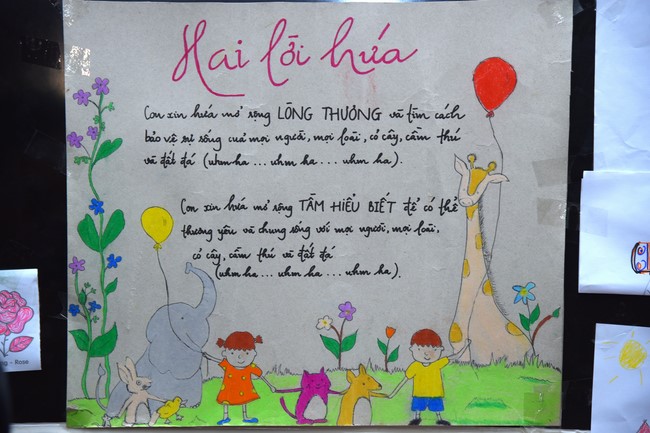 Hai lời hứa
Con xin hứa mở rộng LÒNG THƯƠNG và tìm cách
bảo vệ sự sống của mọi người, mọi loài, cỏ cây, cầm thú
và đất đá (uhm ha ... uhm ha ... uhm ha).
Con xin hứa mở rộng TẦM HIỂU BIẾT để có thể
thương yêu và chung sống với mọi người, mọi loài,
cỏ cây, cầm thú và đất đá
(uhm ha ... uhm ha ... uhm ha).
- Rose